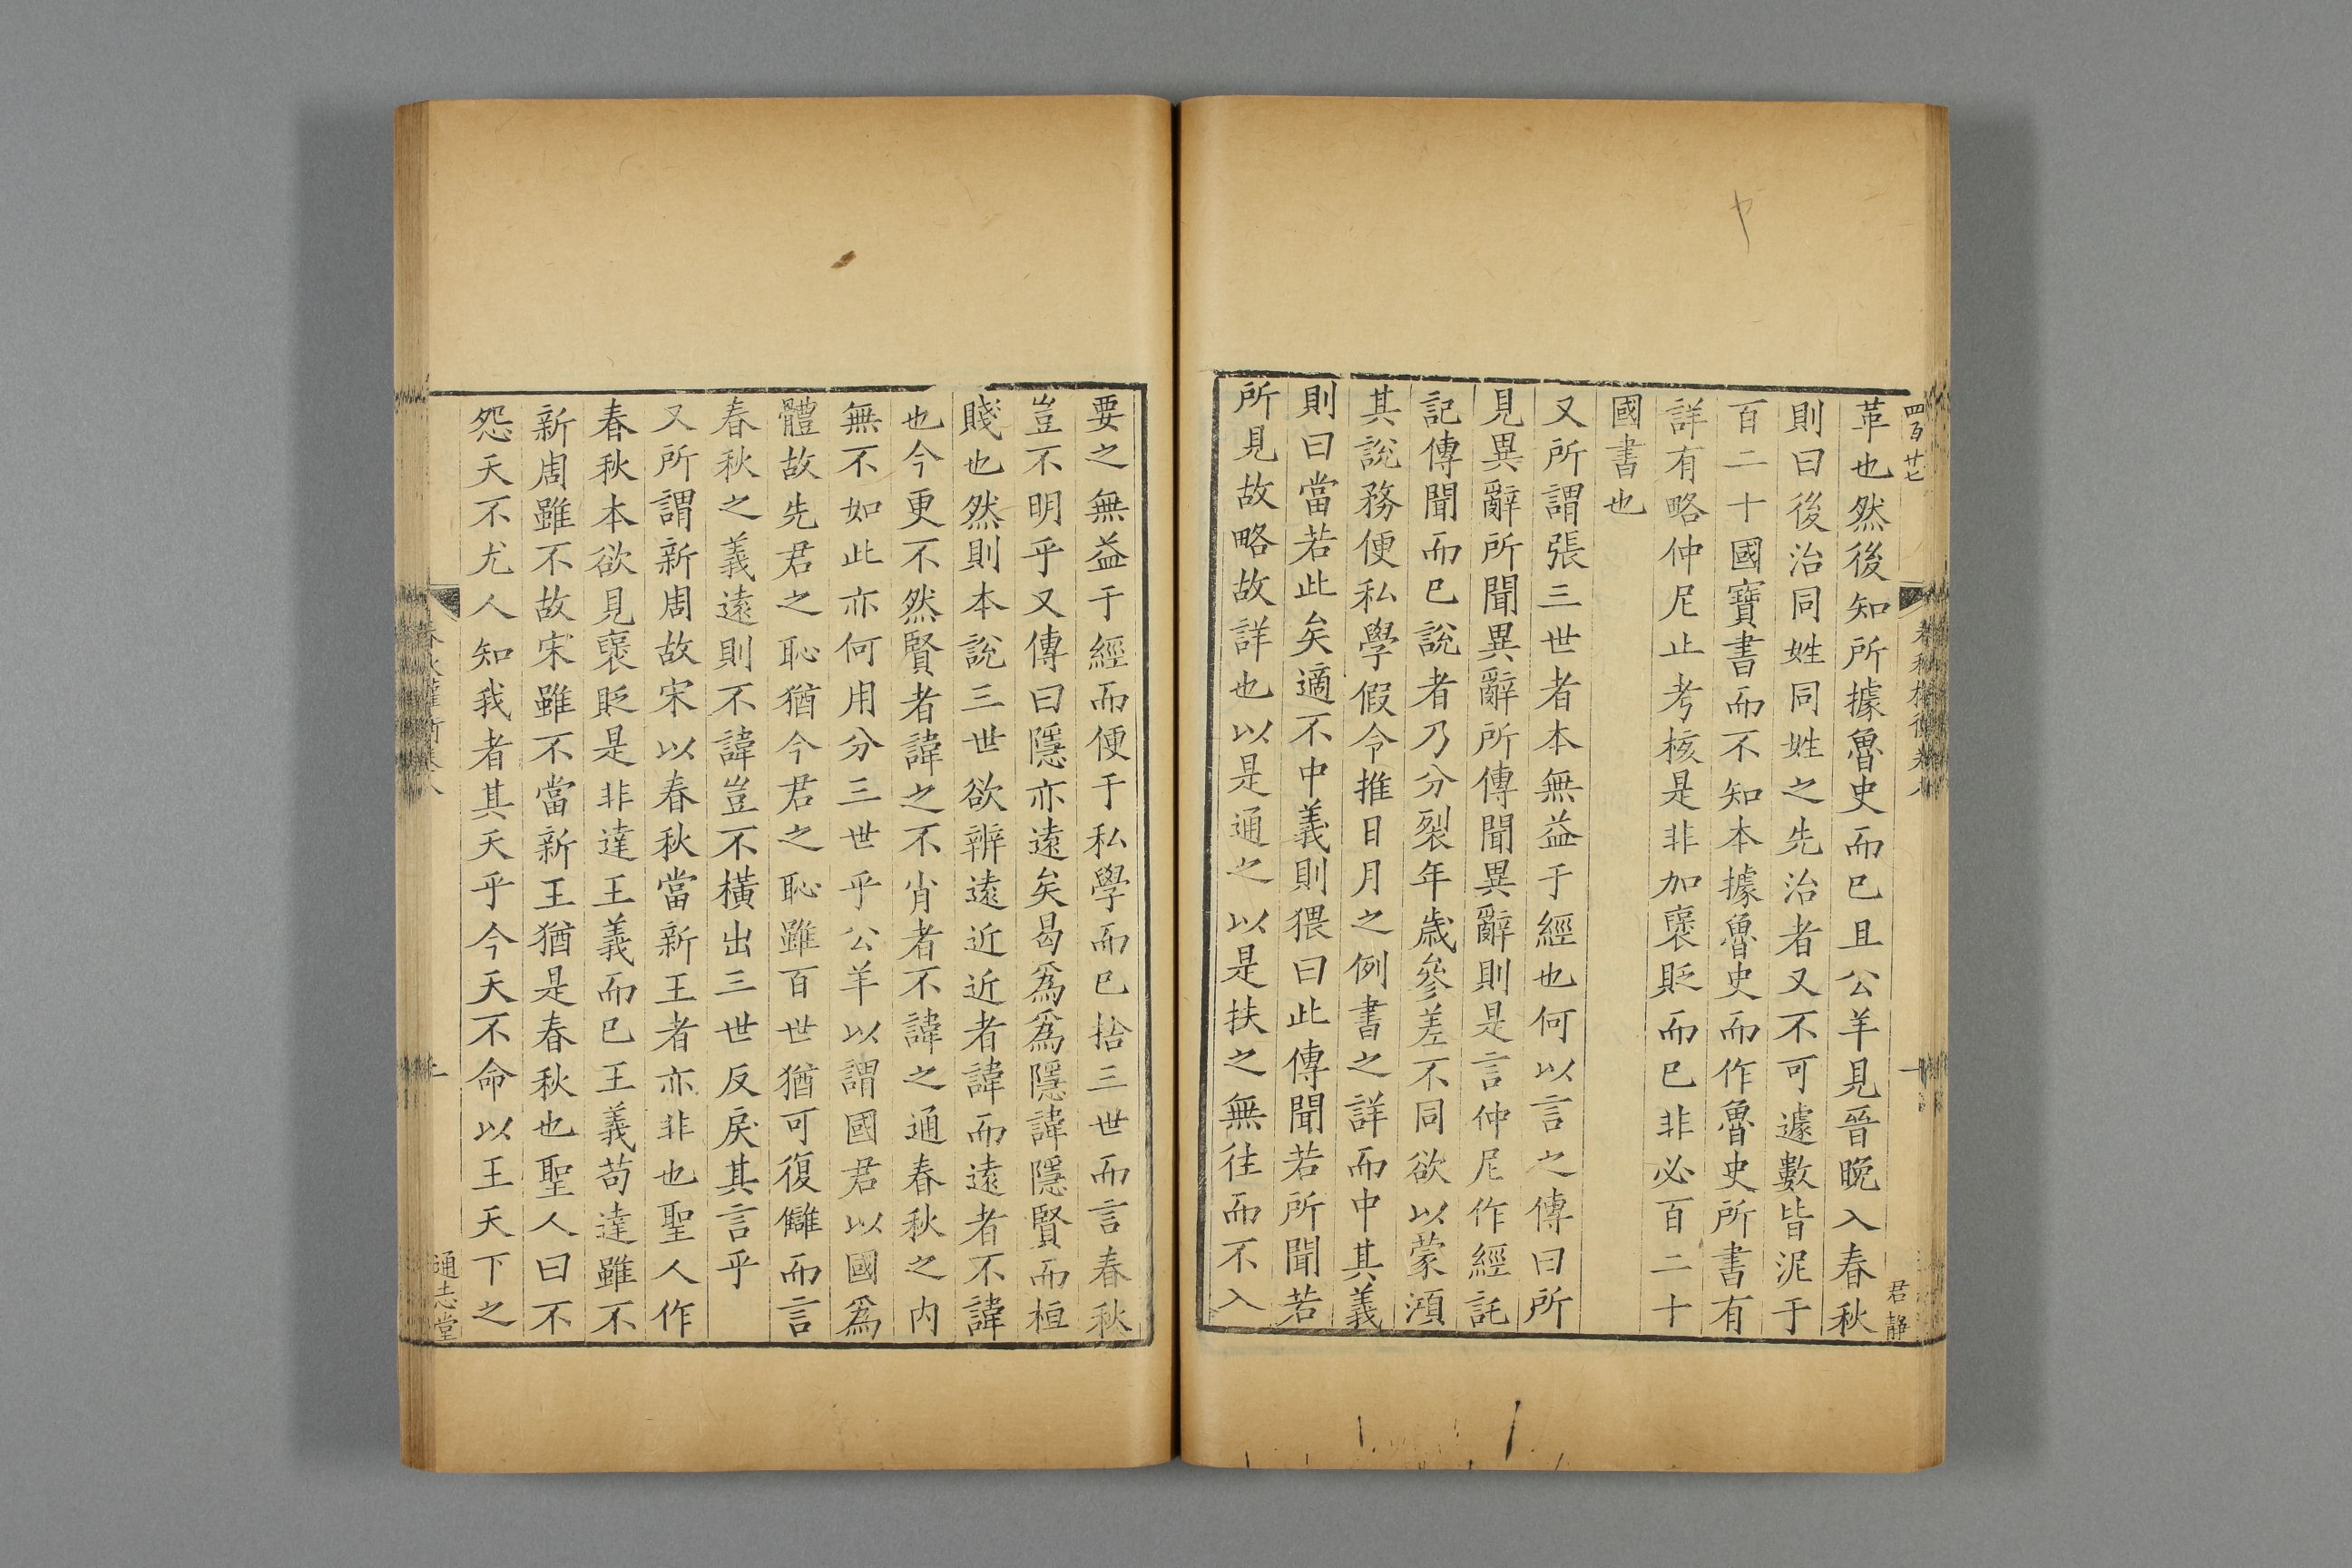 四百廿七
革也然後知所據魯史而已且公羊見晉晚入春秋
則曰後治同姓同姓之先治者又不可遽數皆泥于
百二十國寶書而不知本據魯史而作魯史所書有
詳有略仲尼止考核是非加襃貶而已非必百二十
國書也
又所謂張三世者本無益于經也何以言之傳曰所
見異辭所聞異辭所傳聞異辭則是言仲尼作經託
記傳聞而已說者乃分裂年歲參差不同欲以蒙澒
其說務便私學假令推日月之例書之詳而中其義
則曰當若此矣適不中義則猥曰此傳聞若所聞若
所見故略故詳也以是通之以是扶之無往而不入
君靜
要之無益于經而便于私學而已捨三世而言春秋
豈不明乎又傳曰隱亦遠矣曷爲爲隱諱隱賢而桓
賤也然則本說三世欲辨遠近近者諱而遠者不諱
也今更不然賢者諱之不肖者不諱之通春秋之內
無不如此亦何用分三世乎公羊以謂國君以國爲
體故先君之恥猶今君之恥雖百世猶可復讎而言
春秋之義遠則不諱豈不橫出三世反戾其言乎
又所謂新周故宋以春秋當新王者亦非也聖人作
春秋本欲見襃貶是非達王義而已王義苟達雖不
新周雖不故宋雖不當新王猶是春秋也聖人曰不
怨天不尤人知我者其天乎今天不命以王天下之
通志堂